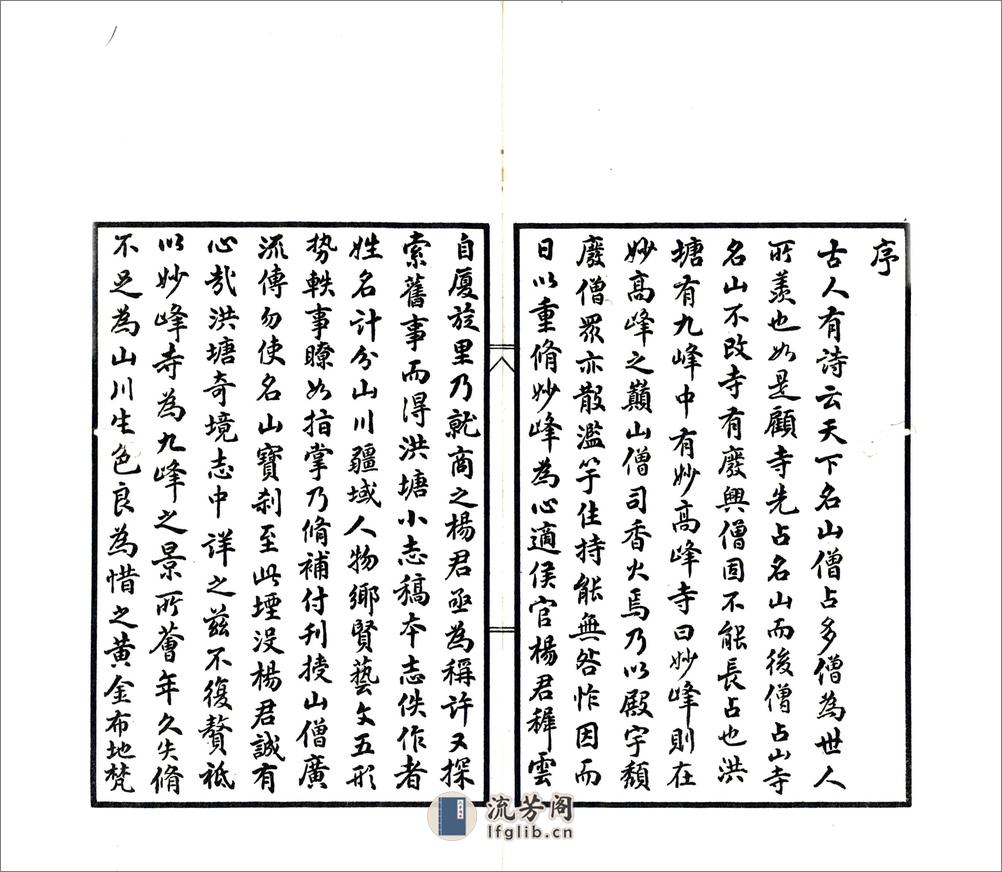 序
古人有詩云天下名山僧占多僧為世人
所羨也如是顧寺先占名山而後僧占山寺
名山不改寺有廢興僧固不能長占也洪
塘有九峰中有妙高峰寺曰妙峰則在
妙高峰之巔山僧司香火焉乃以殿宇頹
廢僧眾亦散濫竽住持能無咎怍因而
日以重脩妙峰為心適侯官楊君穉雲
自廈旋里乃就商之楊君亟為稱許又採
索舊事而得洪塘小志稿本志佚作者
姓名計分山川疆域人物鄉賢藝文五形
势軼事瞭如指掌乃脩補付刊授山僧廣
流傳勿使名山寶刹至此堙没楊君誠有
心哉洪塘奇境志中詳之兹不復贅祗
以妙峰寺為九峰之景所薈年久失脩
不足為山川生色良為惜之黄金布地梵
流芳阁
lfglib.cn